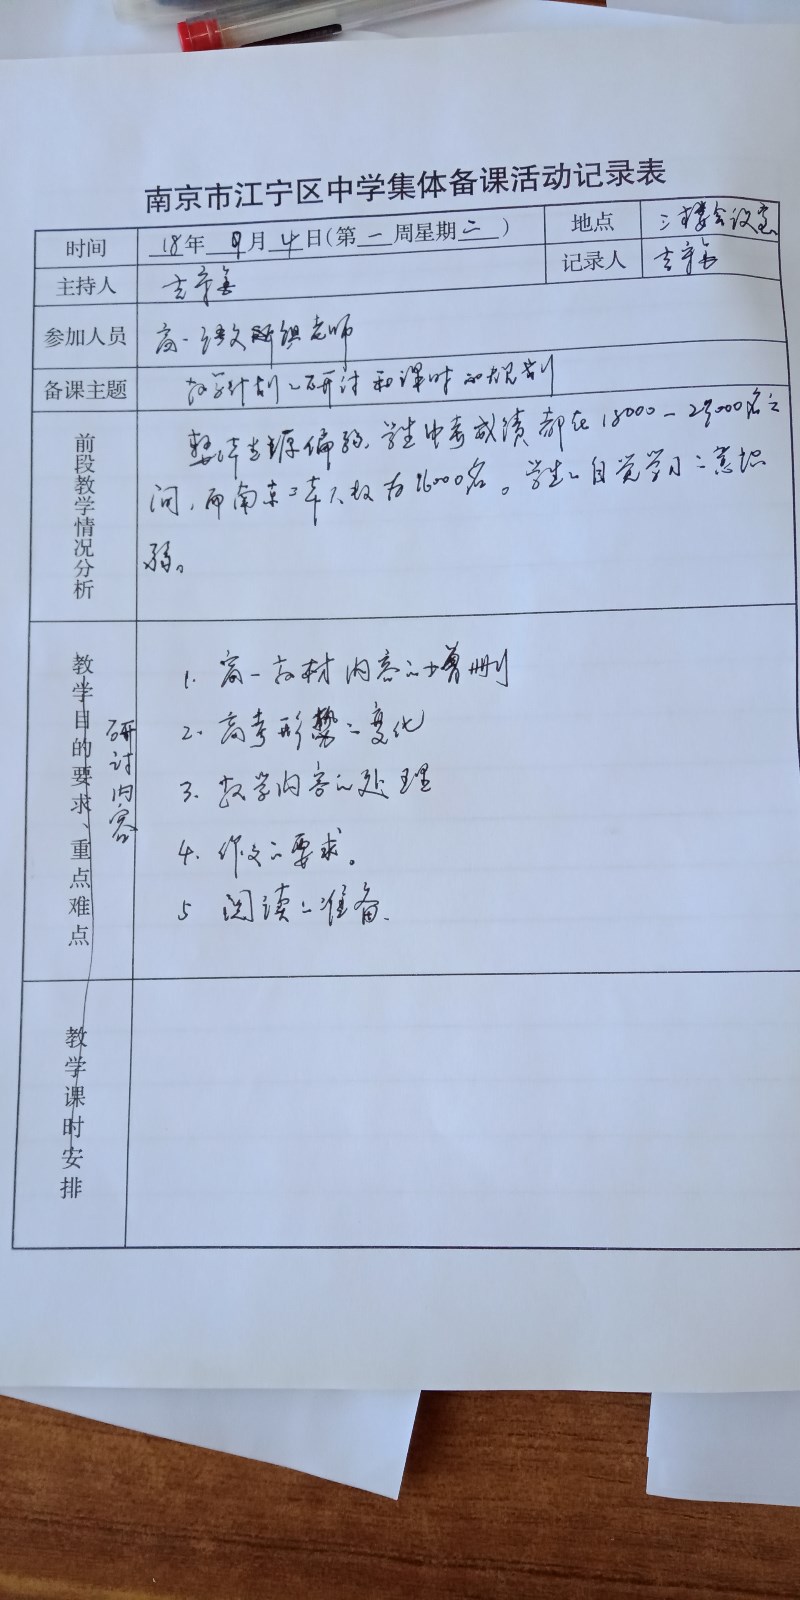 南京市江宁区中学集体备课活动记录表
时间 18年9月4日(第一周星期二) 地点 三楼会议室
主持人 记录人
参加人员 高一语文备组老师
备课主题 教学计划的研讨和课时的规划
前段教学情况分析
整体生源偏弱,学生中考成绩都在18000—25000名之
间,而南京 为26000名。学生的自觉学习的意识
弱。
教学目的要求、重点难点
研讨内容
1. 高一教材内容的增删
2. 高考形势的变化
3. 教学内容的处理
4. 作文的要求。
5 阅读的准备.
教学课时安排